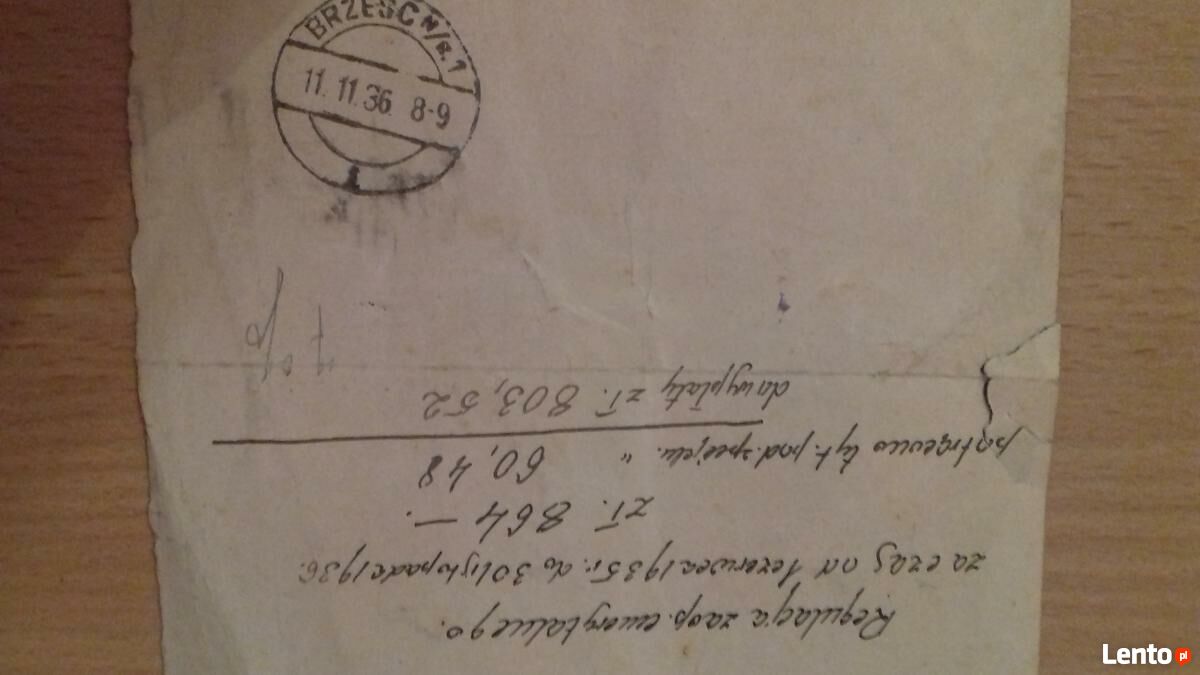 BRZEŚĆ N/B. 1
11. 11. 36 8-9
Regulacja zaop. emerytalnego.
za czas od 1 czerwca 1935 r. do 30 listopada 1936.
zł. 864 —.
potrącono tyt. pod. specjaln. " 60,48
do wypłaty zł. 803,52
Lento pl